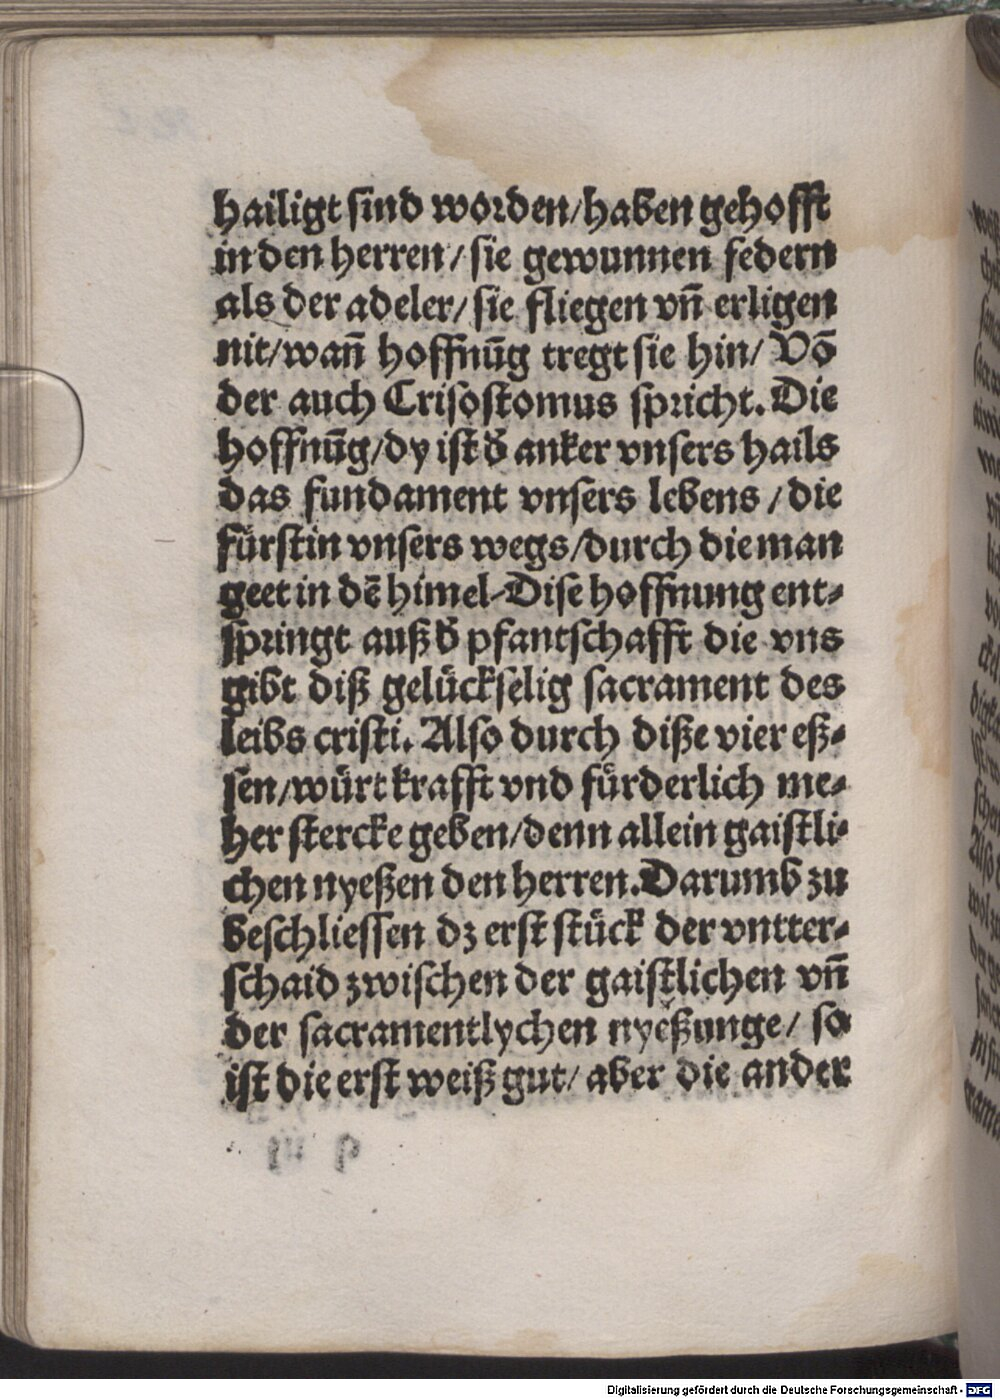 hailigt sind worden/haben gehofft
in den herren/ sie gewunnen federn
als der adeler/ sie fliegen vn̄ erligen
nit/wan̄ hoffnūg tregt sie hin/ Vō
der auch Crisostomus spricht. Die
hoffnūg/dy ist d̕ anker vnsers hails
das fundament vnsers lebens/die
fürstin vnsers wegs/durch die man
geet in dē himel. Dise hoffnung ent⸗
springt auß d̕ pfantschafft die vns
gibt diß gelückselig sacrament des
leibs cristi. Also durch diße vier eß⸗
sen/würt krafft vnd fürderlich me⸗
her stercke geben/denn allein gaistli⸗
chen nyeßen den herren. Darumb zu
beschliessen dz erst stück der vntter⸗
schaid zwischen der gaistlichen vn̄
der sacramentlychen nyeßunge/ so
ist die erst weiß gut/ aber die ander
Digitalisierung gefördert durch die Deutsche Forschungsgemeinschaft - DFG